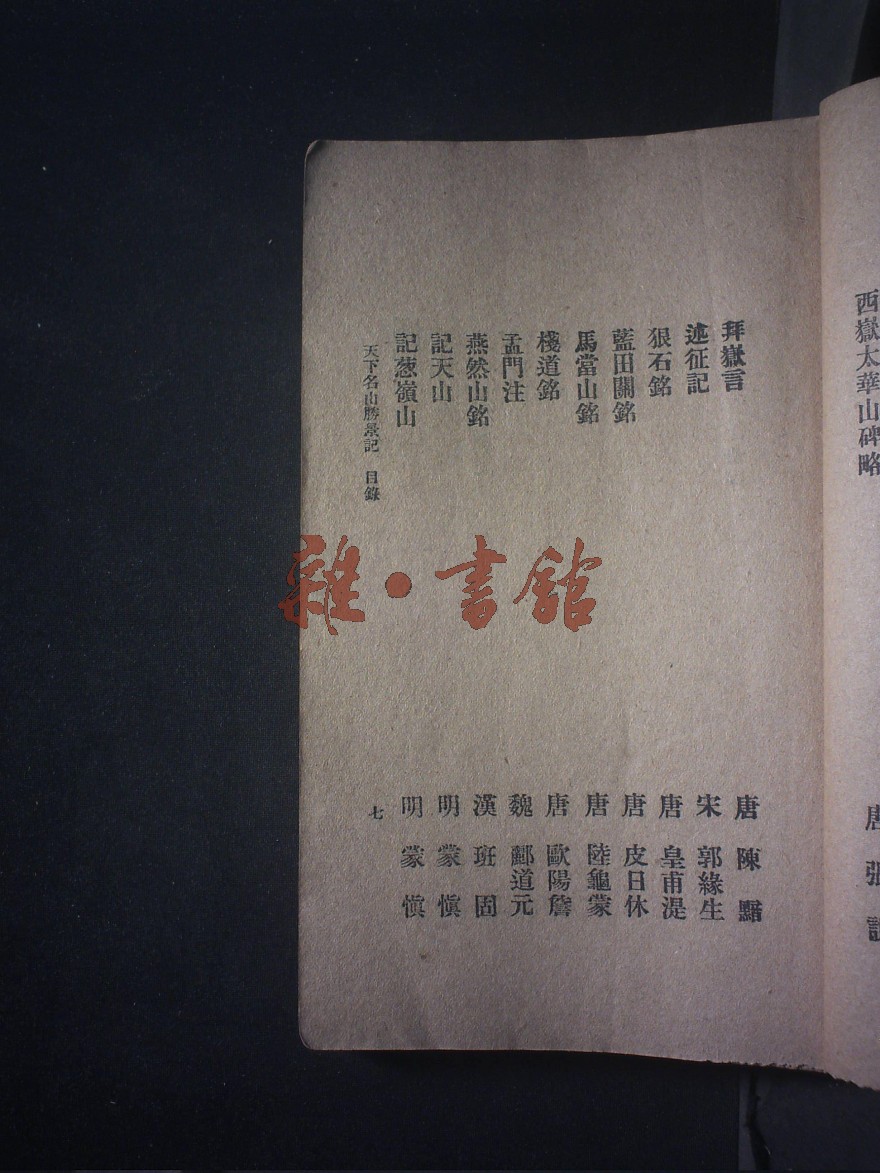 西嶽太華山碑略　唐　張
拜嶽言　唐　陳黯
述征記　宋　郭緣生
狠石銘　唐　皇甫湜
藍田關銘　唐　皮日休
馬當山銘　唐　陸龜蒙
棧道銘　唐　歐陽詹
孟門注　魏　酈道元
燕然山銘　漢　班固
記天山　明　蒙愼
記葱嶺山　明　蒙愼
天下名山勝景記　目錄　七
雜·書館